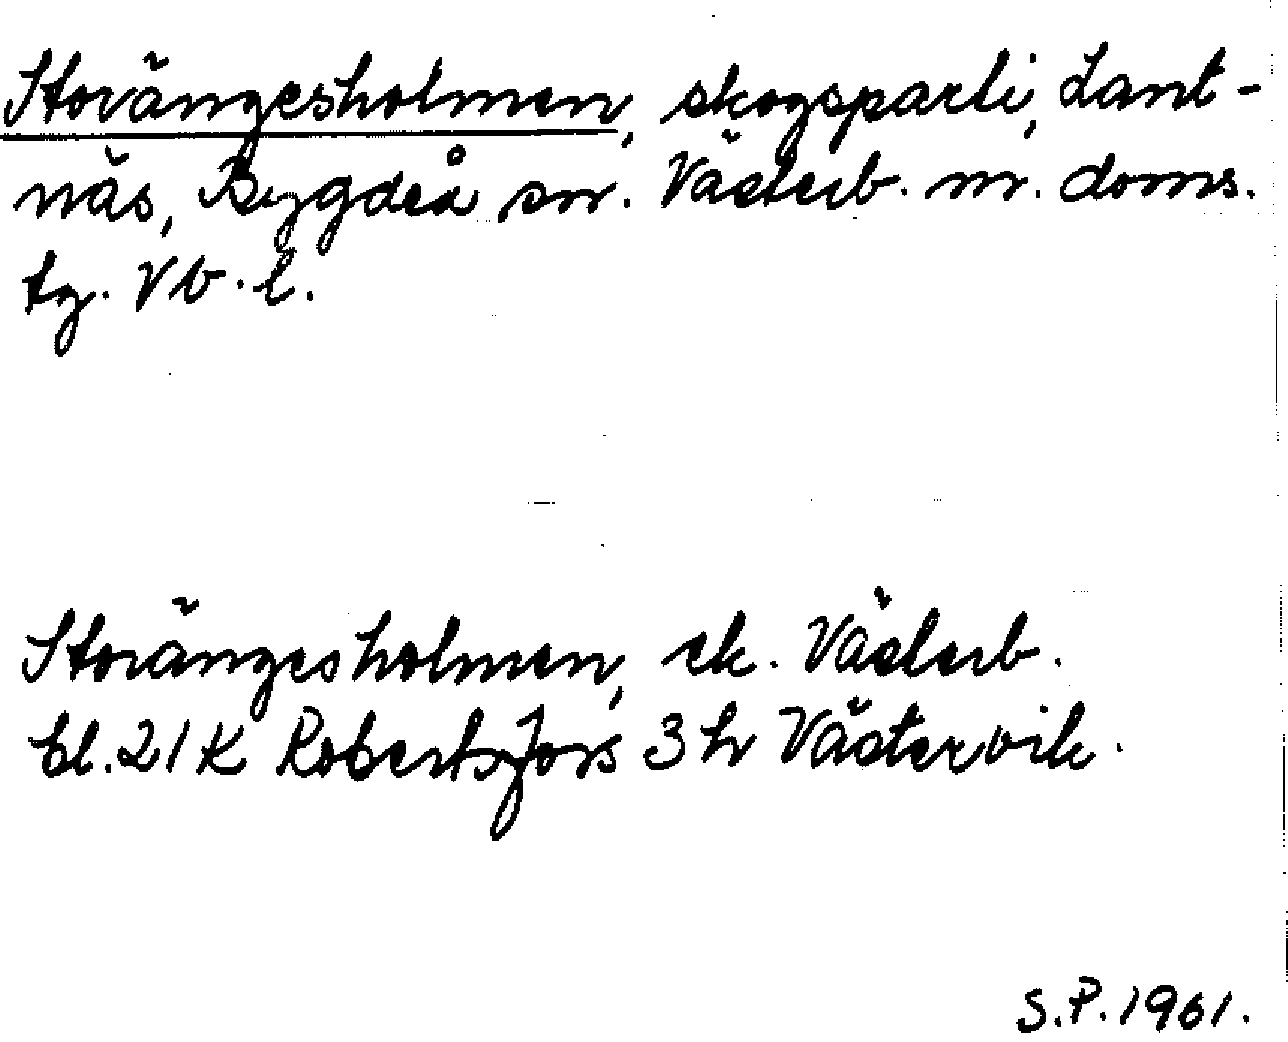 Storängesholmen, skogsparti, Lant-
näs, Bygdeå sn. Västerb. n. doms.
tg. Vb. l.
Storängesholmen, ek. Västerb.
bl. 21K Robertsfors 3 h Västervik.
S.P. 1961.